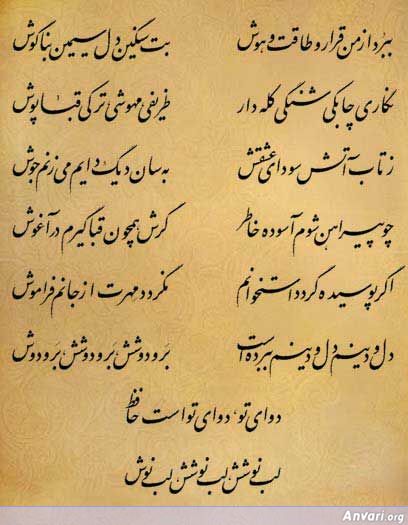 ببرد از من قرار و طاقت و هوش بت سنگین دل سیمین بناگوش
نگاری چابکی شنگی کله دار ظریفی مهوشی ترکی قباپوش
ز تاب آتش سودای عشقش به سان دیگ دایم می زنم جوش
چو پیراهن شوم آسوده خاطر گرش همچون قبا گیرم در آغوش
اگر پوسیده گردد استخوانم نگردد مهرت از جانم فراموش
دل و دینم دل و دینم ببرده است بر و دوشش بر و دوشش بر و دوش
دوای تو دوای تو است حافظ
لب نوشش لب نوشش لب نوش
Anvari.org